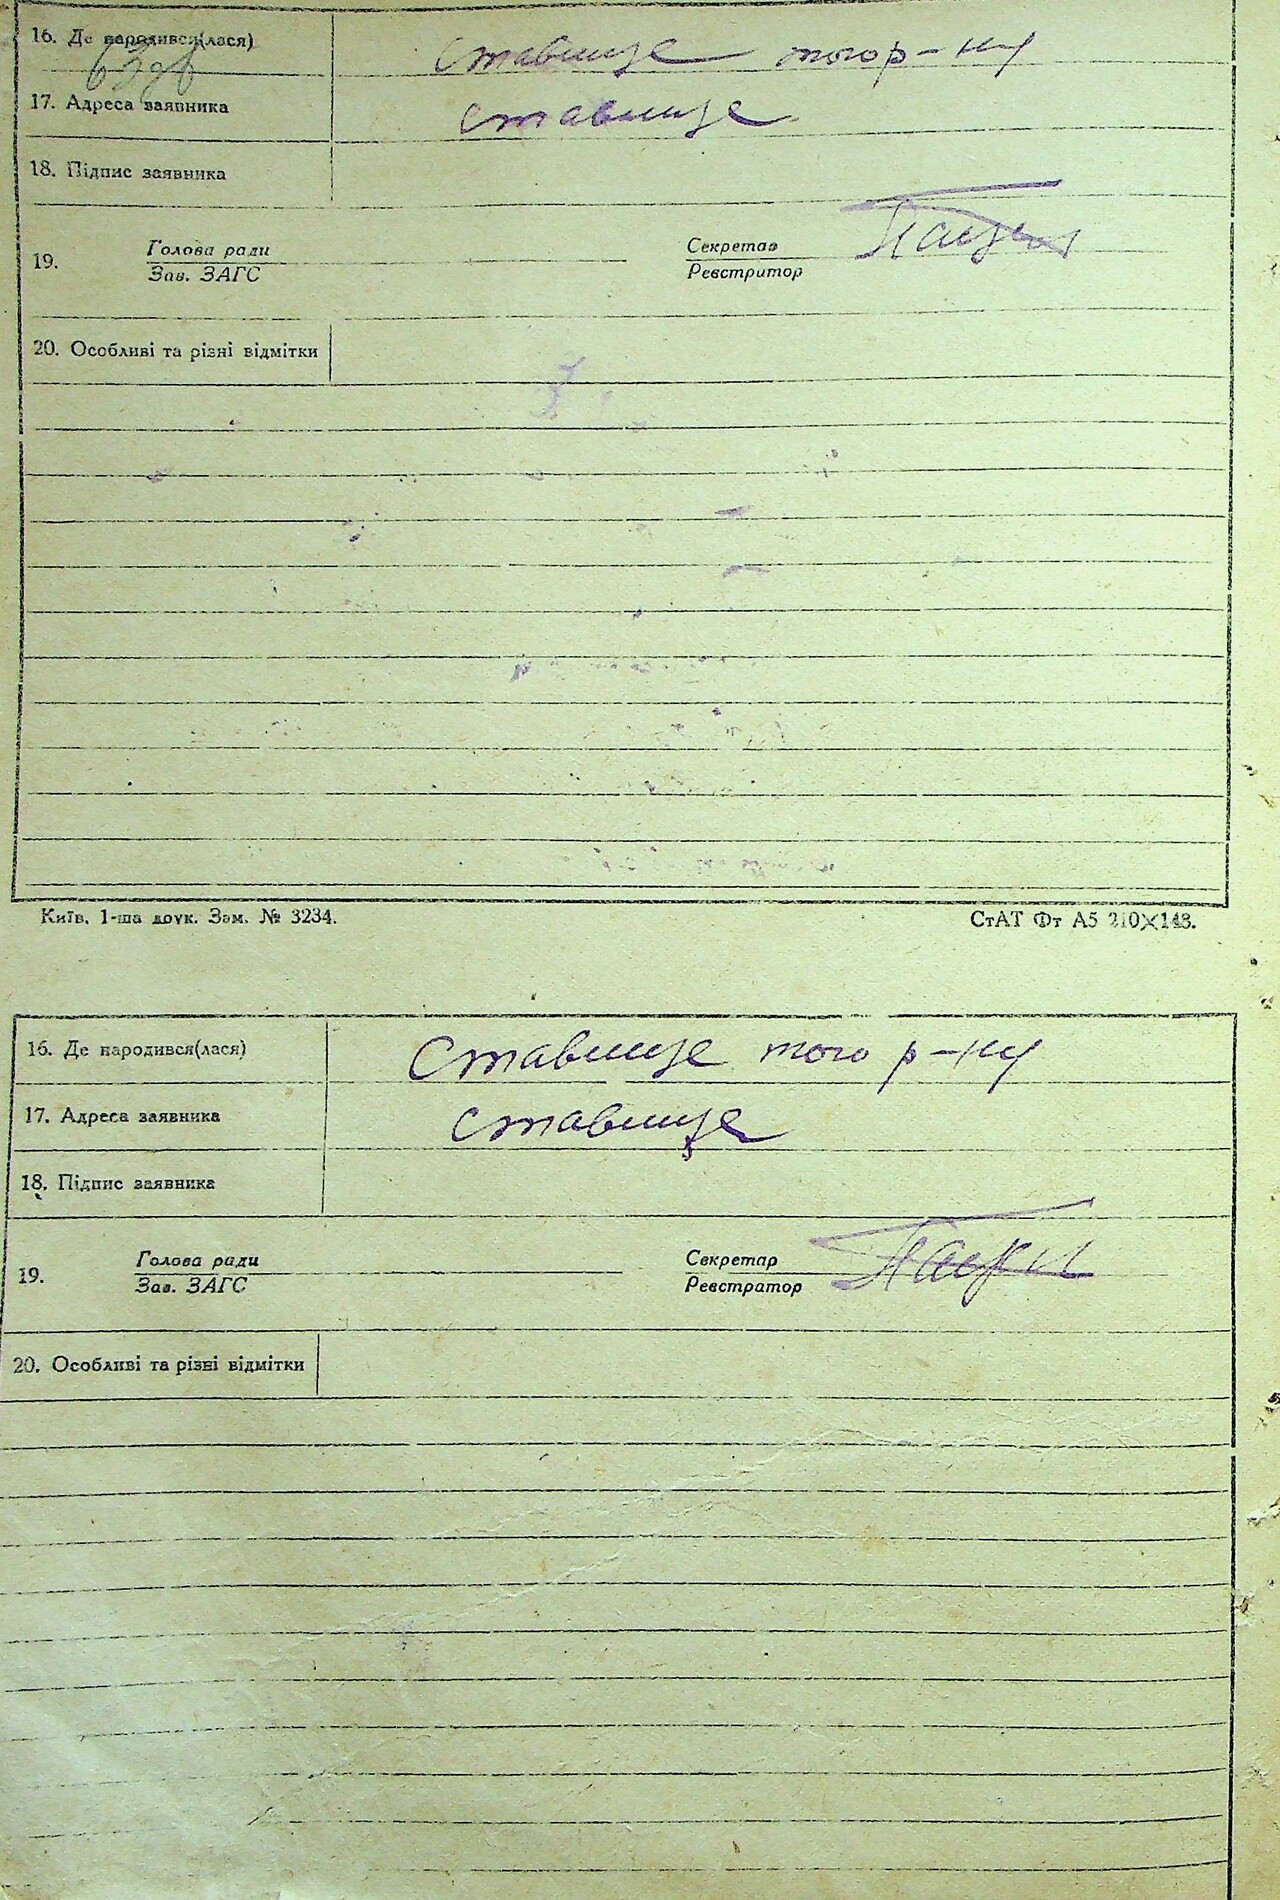 16. Де народився(лася) Ставище того р-ну
63зв
17. Адреса заявника Ставище
18. Підпис заявника
Голова ради Секретар
19.
Зав. ЗАГС Реєстритор
20. Особливі та різні відмітки
Київ. 1-ша друк. Зам. № 3234. СтАТ Фт А5 210×148.
16. Де народився(лася) Ставище того р-ну
17. Адреса заявника Ставище
18. Підпис заявника
Голова ради Секретар
19.
Зав. ЗАГС Реєстратор
20. Особливі та різні відмітки